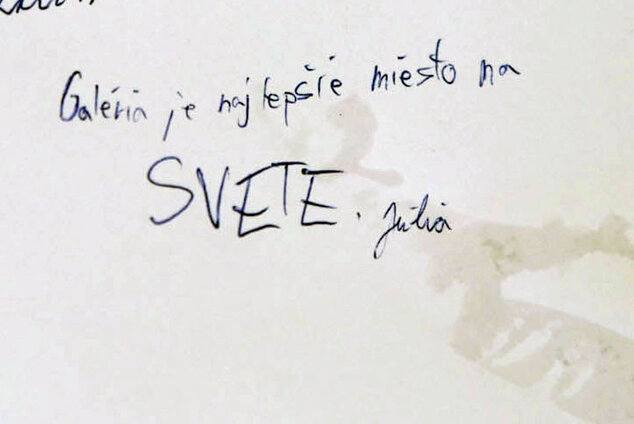 Galéria je najlepšie miesto na
SVETE. Júlia